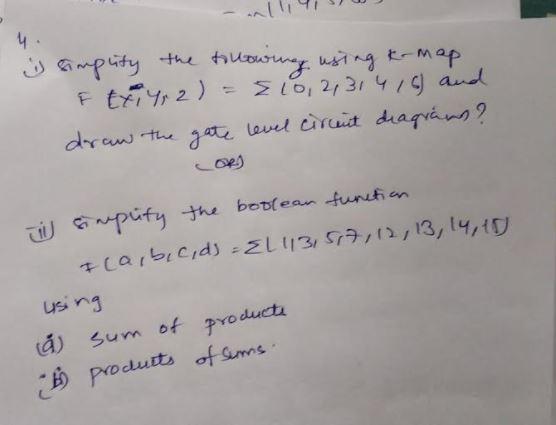 4.
i) simplify the following using K-map
F (x, y, z) = Σ (0, 2, 3, 4, 6) and
draw the gate level circuit diagrams?
(OR)
ii) simplify the boolean function
F(a, b, c, d) = Σ(1, 3, 5, 7, 12, 13, 14, 15)
using
(a) sum of products
(b) products of sums.